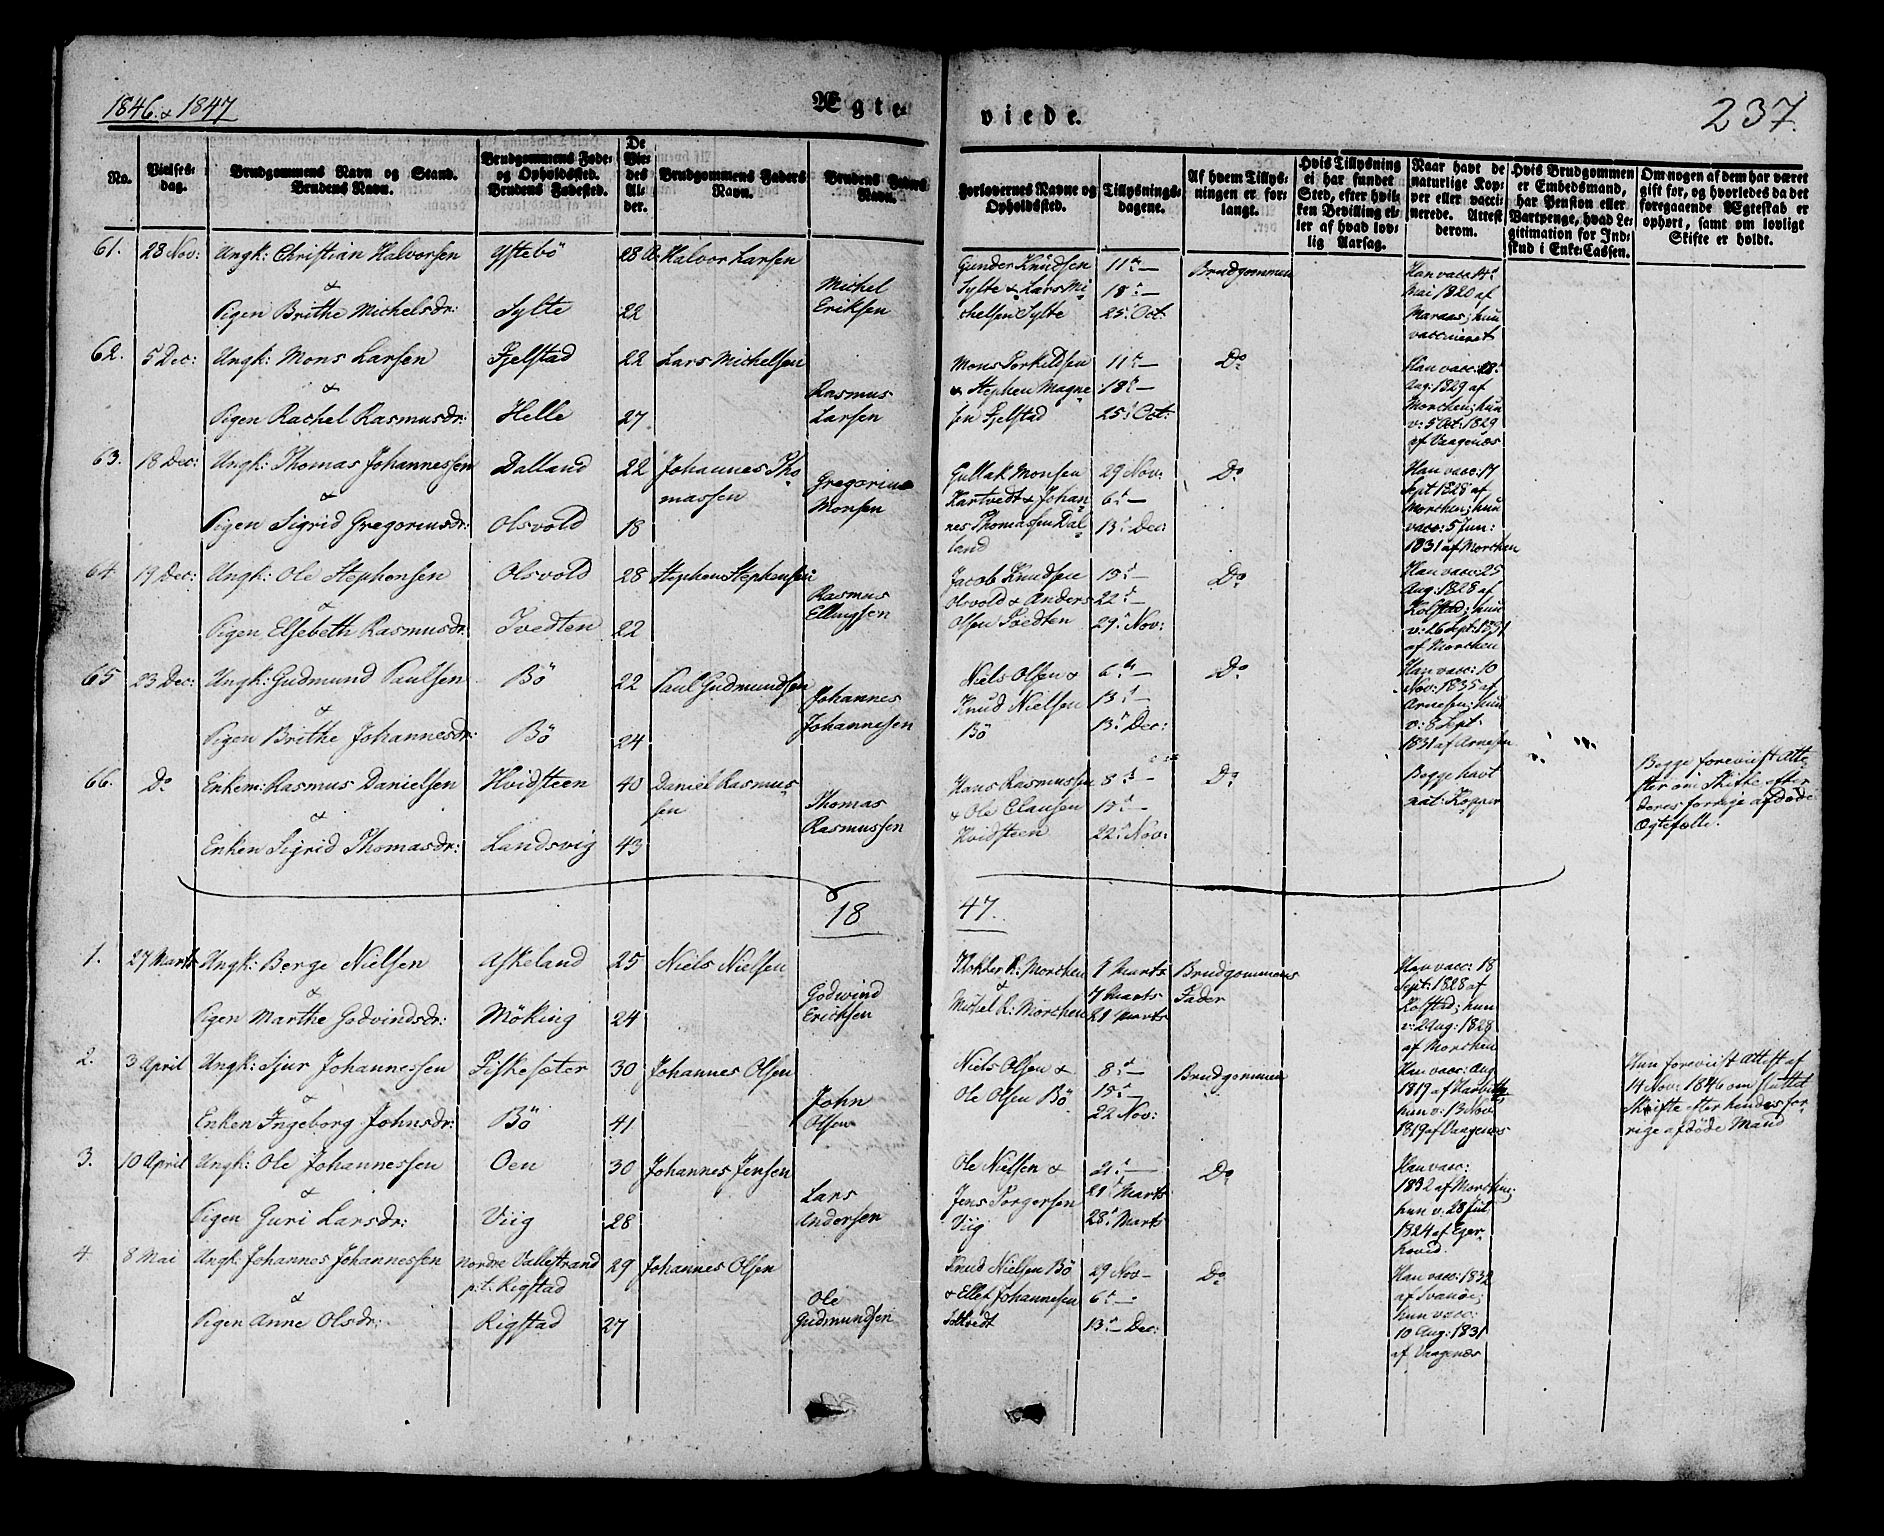 1846 & 1847
Ægte-
viede.
237.
No.
Vielses-
dag.
Brudgommens Navn og Stand.
Brudens Navn.
Brudgommens Føde-
og Opholdssted.
Brudens Fødested.
De
Vie-
des
Al-
der.
Brudgommens Faders
Navn.
Brudens Faders
Navn.
Forlovernes Navne og
Opholdssted.
Tillysnings-
dagene.
Af hvem Tillys-
ningen er for-
langt.
Hvis Tillysning
ei har fundet
Sted, efter hvil-
ken Bevilling el-
ler af hvad lov-
lig Aarsag.
Naar havt de
naturlige Kop-
per eller vacci-
nerede. Attest
derom.
Hvis Brudgommen
er Embedsmand,
har Pension eller
Vartpenge, hvad Le-
gitimation for Ind-
skud i Enke-Cassen.
Om nogen af dem har været
gift før, og hvorledes da det
foregaaende Ægteskab er
ophørt, samt om lovligt
Skifte er holdt.
61. 28 Nov: Ungk: Christian Halvorsen Ystebö 28 Halvor Larsen
&
Pigen Brithe Michelsdr: Sylte 22
Michel
Eriksen
Gunder Knudsen
Sylte & Lars Mi-
chelsen Sylte
11te —
18 —
25 Oct:
Brudgommen
Han vacc: 14d
Mai 1820 af
Maraas; hun
vaccineret
62. 5 Dec: Ungk: Mons Larsen Fjelstad 22 Lars Michelsen
&
Pigen Rachel Rasmusdr: Helle 27
Rasmus
Larsen
Mons Torkildsen
& Stephen Magne-
sen Fjelstad
11te —
18 —
25 Oct:
Do
Han vacc: 28
Aug: 1829 af
Morchen; hun
v: 5 Oct: 1829
af Vaagenæs
63. 18 Dec: Ungk: Thomas Johannessen Dalland 22 Johannes Tho-
massen
&
Pigen Sigrid Gregoriusdr: Olsvold 18
Gregorius
Monsen
Gullak Monsen
Hartvedt & Johan-
nes Thomassen Dal-
land
29 Nov:
6 —
13 Dec:
Do
Han vacc: 17
Sept 1828 af
Morchen; hun
vacc: 5 Jun:
1831 af Morchen
64. 19 Dec: Ungk: Ole Stephensen Olsvold 28 Stephen Stephensen
&
Pigen Elsebeth Rasmusdr: Tvedten 22
Rasmus
Ellingsen
Jacob Knudsen
Olsvold & Anders
Olsen Tvedten
15 —
22 —
29 Nov:
Do
Han vacc: 25
Aug: 1828 af
Kolstad; hun
v: 26 Sept: 1831
af Morchen
65 23 Dec: Ungk: Gudmund Paulsen Bö 22 Paul Gudmundsen
&
Pigen Brithe Johannesdr: Bö 24
Johannes
Johannesen
Niels Olsen &
Knud Nielsen
Bö
6te —
13 —
13 Dec:
Do
Han vacc: 10
Nov: 1835 af
Arnesen; hun
v: 8 Sept:
1831 af Arnesen
66. Do Enkem: Rasmus Danielsen Hvidsteen 40 Daniel Rasmus-
sen
&
Enken Sigrid Thomasdr: Landsvig 43
Thomas
Rasmussen
Hans Rasmussen
& Ole Clausen
Hvidsteen
8 —
15 —
22 Nov:
Do
Begge havt
nat: Kopper
Begge foreviist Atte-
ster om Skifte efter
deres forrige afdøde
Ægtefælle.
18 47.
1. 27 Marts Ungk: Berge Nielsen Askeland 25 Niels Nielsen
&
Pigen Marthe Godvindsdr: Möking 24
Godwind
Ericksen
Klokker K: Morchen
&
Michel K: Morchen
1 Marts
7 Marts
21 Marts
Brudgommens
Fader
Han vacc: 18
Sept: 1828 af
Kolstad; hun
v: 2 Aug: 1828
af Morchen
2. 3 April Ungk: Sjur Johannessen Fiskesæter 30 Johannes Olsen
&
Enken Ingeborg Johnsdr: Bö 41
John
Olsen
Niels Olsen &
Ole Olsen Bö
8 —
15 —
22 Nov:
Brudgommen
Han vacc: Aug
1819 af
hun v: 13 Nov
1819 af Vaagenæs
Hun foreviist Attest af
14 Nov: 1846 om sluttet
Skifte efter hendes for-
rige afdøde Mand
3. 10 April Ungk: Ole Johannessen Oen 30 Johannes Jensen
&
Pigen Guri Larsdr: Viig 28
Lars
Andersen
Ole Nielsen &
Jens Torgersen
Viig
21 —
21 Marts
28 Marts
Do
Han vacc:
1832 af Morchen;
hun v: 28 Jul
1824 af Eger-
hovid.
4 8 Mai Ungk: Johannes Johannessen Nordre Vallestrand 29 Johannes Olsen
p:t: Rigstad
&
Pigen Anne Olsdr: Rigstad 27
Ole
Gudmundsen
Knud Nielsen Bö
& Ellef Johannesen
29 Nov —
6 —
13 — Dec:
Do
Han vacc: 1832
af Svanöe;
hun vacc:
10 Aug: 1831
af Vaagenæs